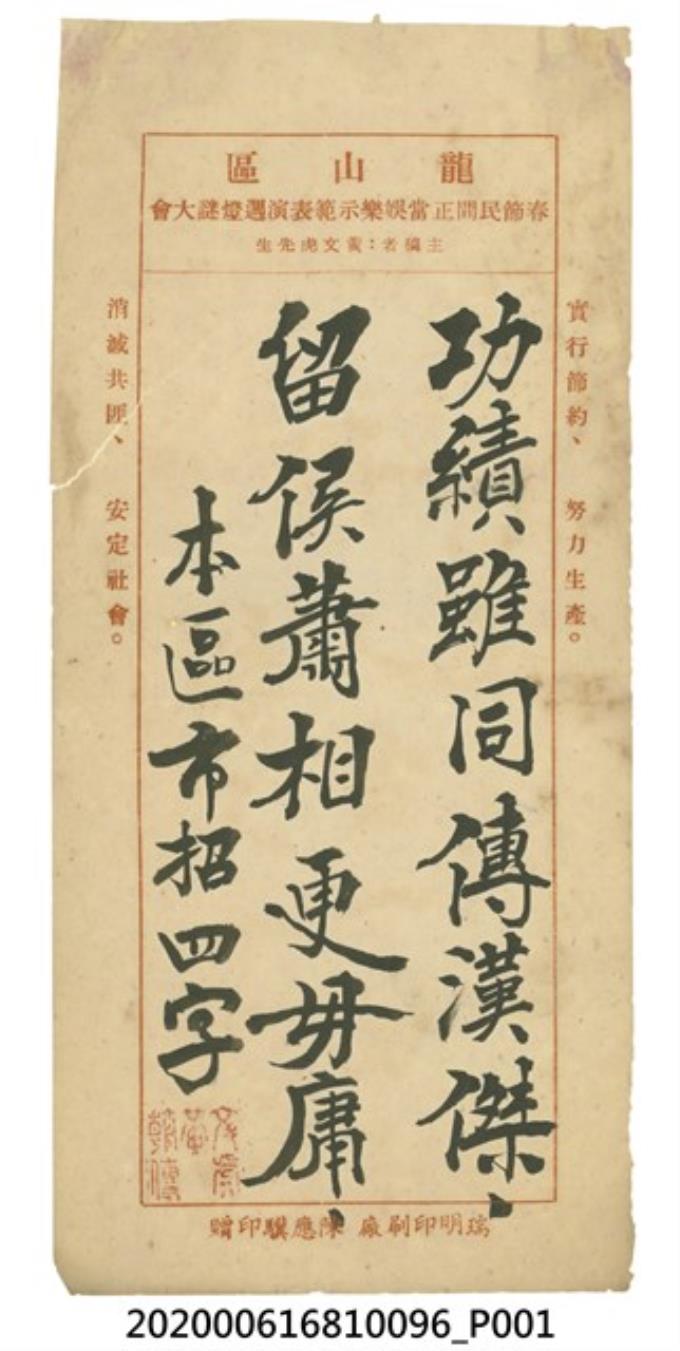 龍山區
春節民間正當娛樂示範表演選燈謎大會
主稿者：黃文虎先生
實行節約、努力生產。
功績雖同傳漢傑、
留侯蕭相更毋庸、
本區市招四字
消滅共匪、安定社會。
瑞明印刷廠 陳應騏印贈
202000616810096_P001